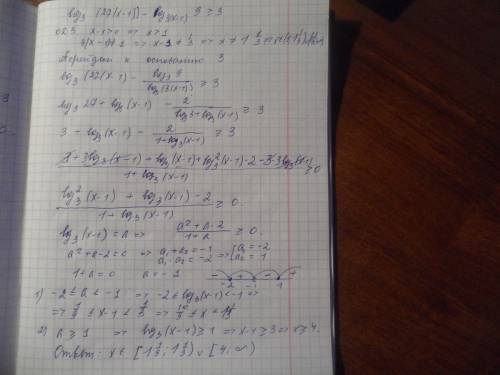 log₃ (27(x-1)) - log₃₍ₓ₋₁₎ 9 ≥ 3
ОДЗ x-1>0 => x>1
3(x-1)≠1 => x-1≠1/3 => x≠1 1/3
Перейдём к основанию 3
log₃ (27(x-1)) - log₃ 9 / log₃ (3(x-1)) ≥ 3
log₃ 27 + log₃ (x-1) - 2 / (log₃ 3 + log₃ (x-1)) ≥ 3
3 + log₃ (x-1) - 2 / (1+log₃ (x-1)) ≥ 3
(3 + 3log₃ (x-1) + log₃ (x-1) + log₃² (x-1) - 2 - 3 - 3log₃ (x-1)) / (1+log₃ (x-1)) ≥ 0
(log₃² (x-1) + log₃ (x-1) - 2) / (1+log₃ (x-1)) ≥ 0
log₃ (x-1) = a => (a²+a-2) / (1+a) ≥ 0.
a²+a-2=0 => a₁+a₂=-1 a₁·a₂=-2 => [a₁=-2 a₂=1
1+a=0 a=-1 - + - + -2 -1 1
1) -2 ≤ a < -1 => -2 ≤ log₃ (x-1) < -1 =>
=> 1/9 ≤ x-1 < 1/3 => 10/9 ≤ x <
2) a ≥ 1 => log₃ (x-1) ≥ 1 => x-1 ≥ 3 => x ≥ 4.
Ответ: x ∈ [1 1/9; 1 1/3) ∪ [4; ∞)